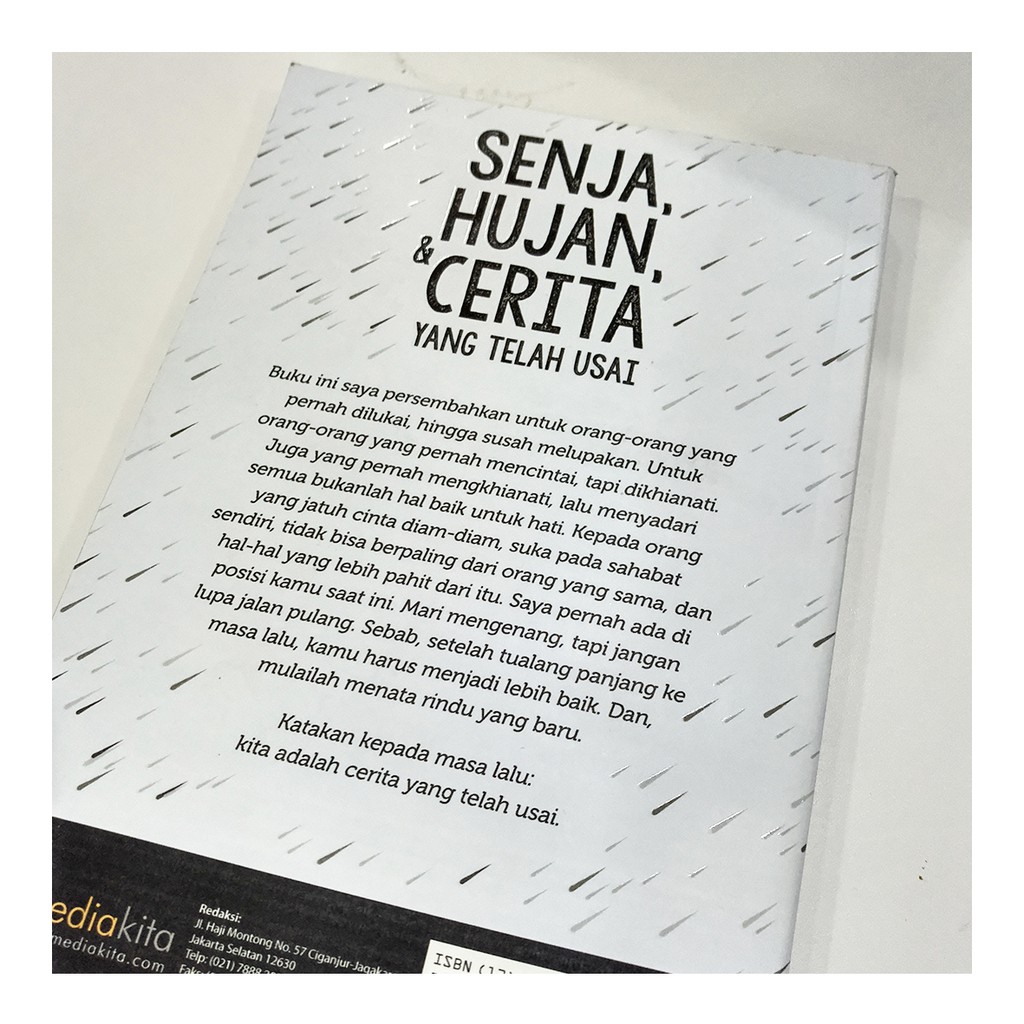 SENJA,
HUJAN,
& CERITA
YANG TELAH USAI
Buku ini saya persembahkan untuk orang-orang yang
pernah dilukai, hingga susah melupakan. Untuk
orang-orang yang pernah mencintai, tapi dikhianati.
Juga yang pernah mengkhianati, lalu menyadari
semua bukanlah hal baik untuk hati. Kepada orang
yang jatuh cinta diam-diam, suka pada sahabat
sendiri, tidak bisa berpaling dari orang yang sama, dan
hal-hal yang lebih pahit dari itu. Saya pernah ada di
posisi kamu saat ini. Mari mengenang, tapi jangan
lupa jalan pulang. Sebab, setelah tualang panjang ke
masa lalu, kamu harus menjadi lebih baik. Dan,
mulailah menata rindu yang baru.
Katakan kepada masa lalu:
kita adalah cerita yang telah usai.
ediakita
mediakita.com
Redaksi:
Jl. Haji Montong No. 57 Ciganjur-Jagaka
Jakarta Selatan 12630
Telp: (021) 7888
ISBN